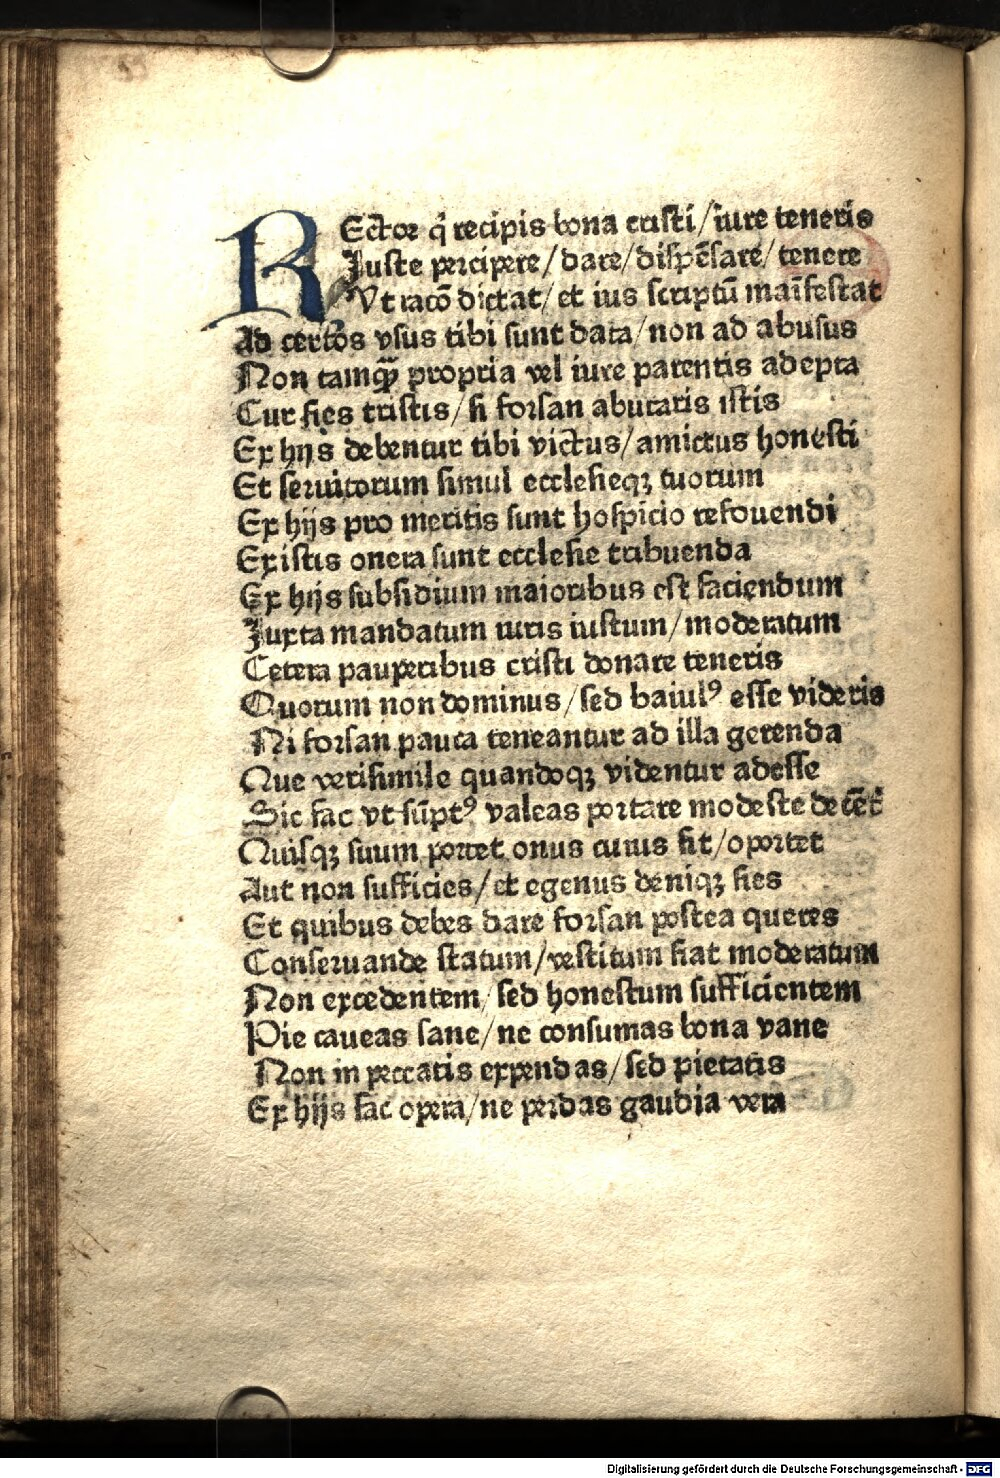 REctor q̇ recipis bona cristi/iure teneris
Iuste percipere/dare/dispēsare/tenere
Vt racō dictat/et ius scriptū maīfestat
Ad certos vsus tibi sunt data/non ad abusus
Non tamqᷓ propria vel iure parentis adepta
Cur fies tristis/si forsan abutaris istis
Ex hijs debentur tibi victus/amictus honesti
Et seruitorum simul ecclesieqꝫ tuorum
Ex hijs pro meritis sunt hospicio refouendi
Ex istis onera sunt ecclesie tribuenda
Ex hijs subsidium maioribus est faciendum
Juxta mandatum iuris iustum/moderatum
Cetera pauperibus cristi donare teneris
Quorum non dominus/sed baiulꝰ esse videris
Ni forsan pauca teneantur ad illa gerenda
Que verisimile quandoqꝫ videntur adesse
Sic fac vt sūptꝰ valeas portare modeste decēt̓
Quisqꝫ suum portet onus cuius sit/oportet
Aut non sufficies/et egenus deniqꝫ fies
Et quibus debes dare forsan postea queres
Conseruande statum/vestitum fiat moderatum
Non excedentem/sed honestum sufficientem
Pie caueas sane/ne consumas bona vane
Non in peccatis expendas/sed pietatis
Ex hijs fac opera/ne perdas gaudia vera
Digitalisierung gefördert durch die Deutsche Forschungsgemeinschaft - DFG